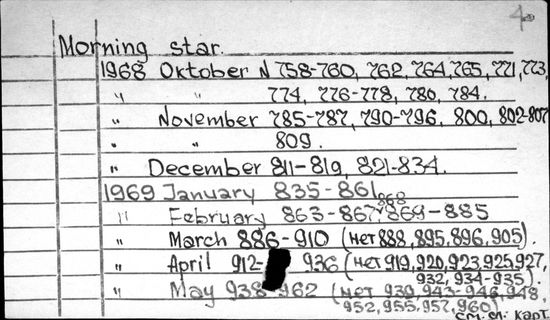 4
Morning star.
1968 Oktober N 758-760, 762, 764, 765, 771, 773,
" " 774, 776-778, 780, 784.
" November 785-787, 790-796, 800, 802-807
" " 809.
" December 811-819, 821-834.
1969 January 835-861
" February 863-867, 868, 869-885
" March 886-910 (нет 888, 895, 896, 905).
" April 912- 936 (нет 919, 920, 923, 925, 927,
932, 934-935)
" May 938-962 (нет 939, 943-946, 948,
952, 955, 957, 960)
см. сл. карт.